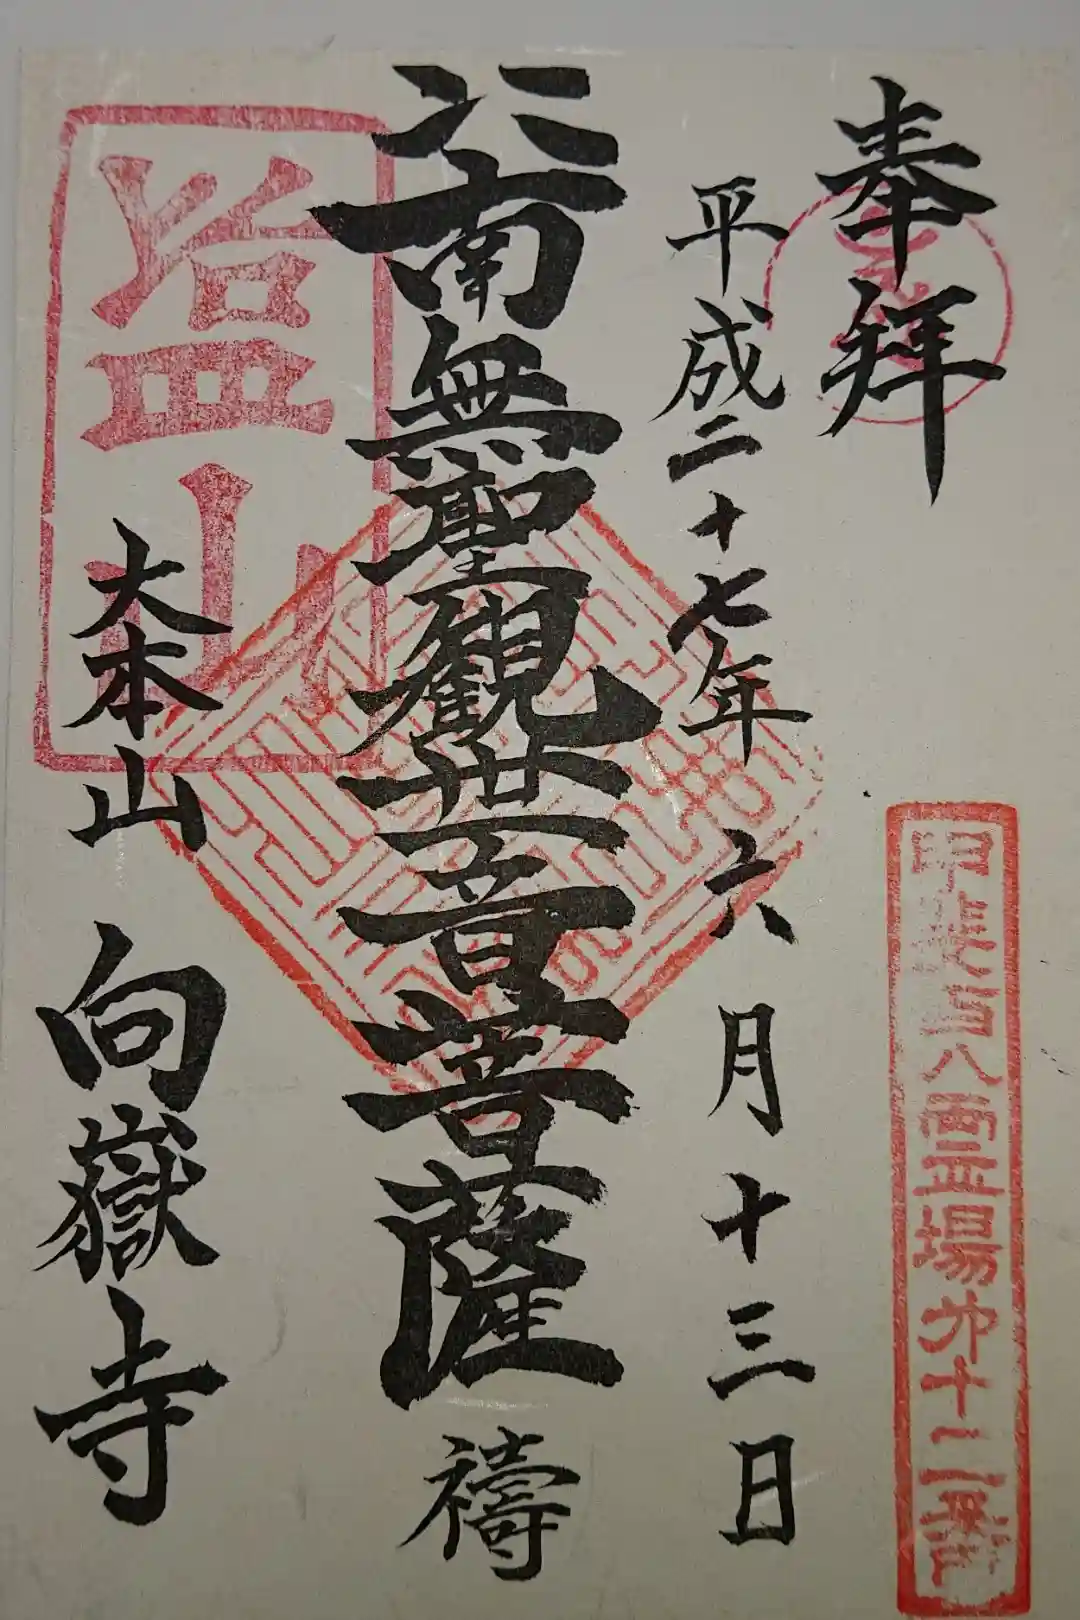 奉拜
甲斐百八霊場第十二番
平成二十七年六月十三日
南無聖観世音菩薩 祷
塩山
大本山 向嶽寺